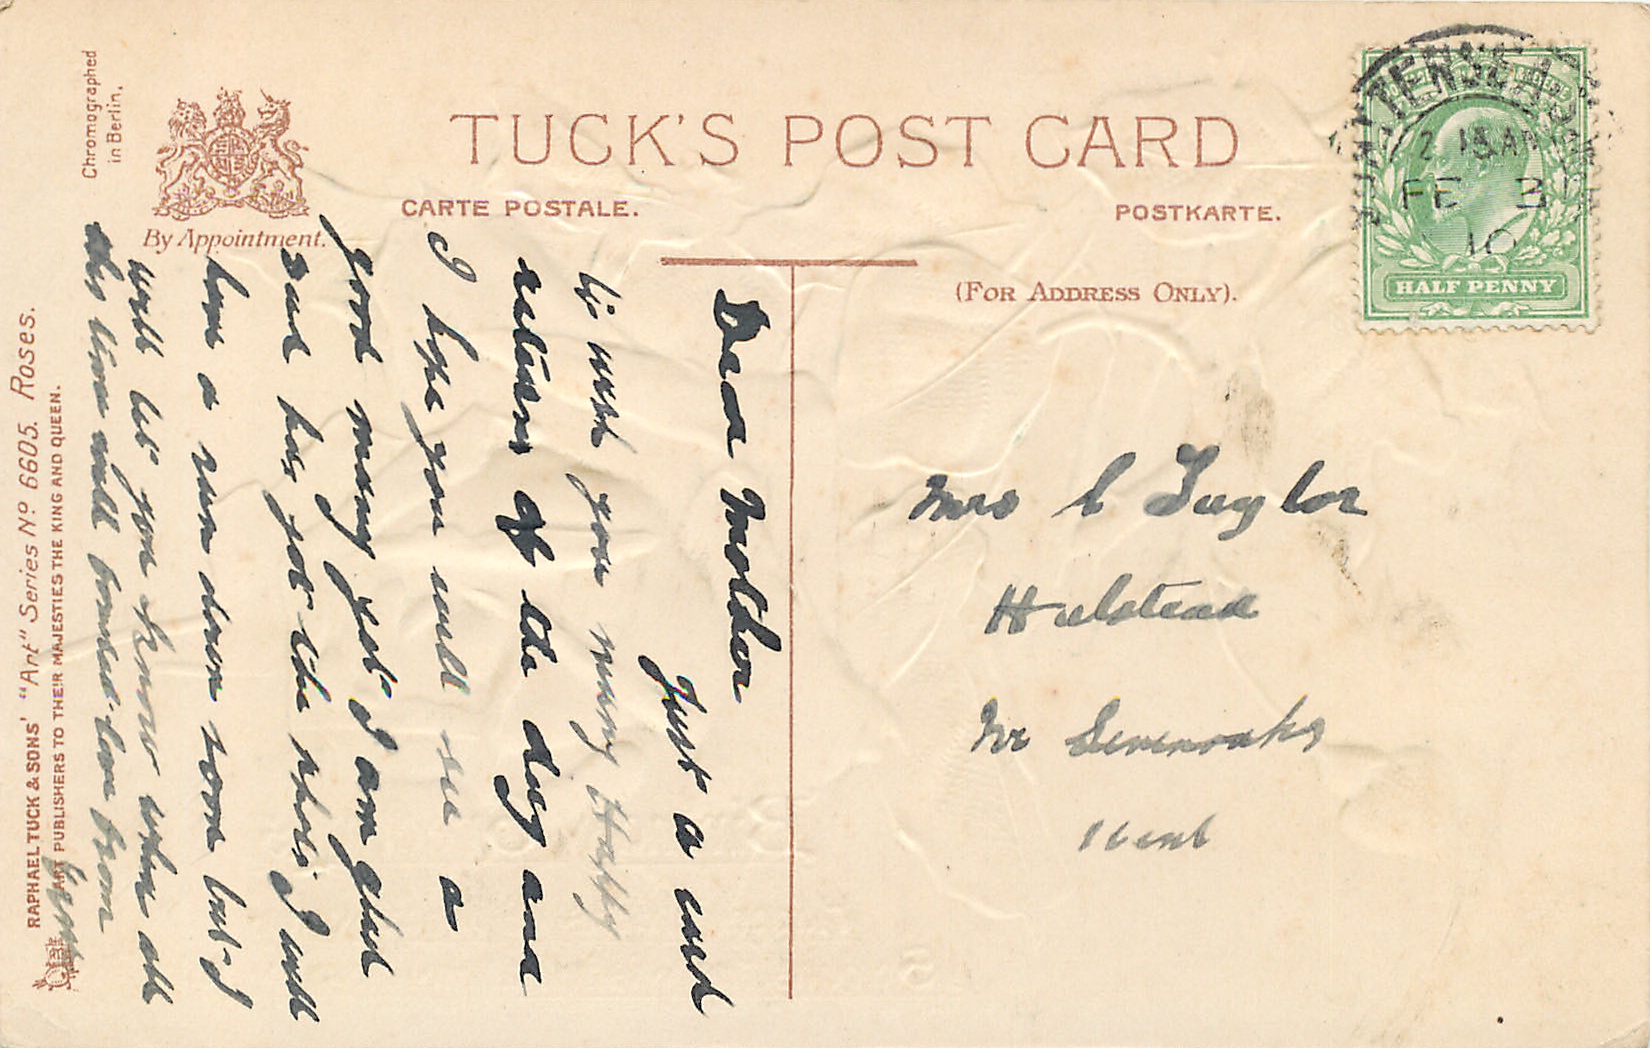 Chromographed
in Berlin.
By Appointment.
TUCK'S POST CARD
CARTE POSTALE.
POSTKARTE.
(FOR ADDRESS ONLY).
2 15 AM
FE 3
10
HALF PENNY
RAPHAEL TUCK & SONS' "Art" Series Nº 6605. Roses.
ART PUBLISHERS TO THEIR MAJESTIES THE KING AND QUEEN.
Dear Mother
Just a card
to wish you many Happy
returns of the day and
I hope you will see a
good many yet I am glad
and has got the I will
have a run down soon but I
will let you know when all
this time with from
Mrs C Taylor
Halstead
Nr Sevenoaks
Kent